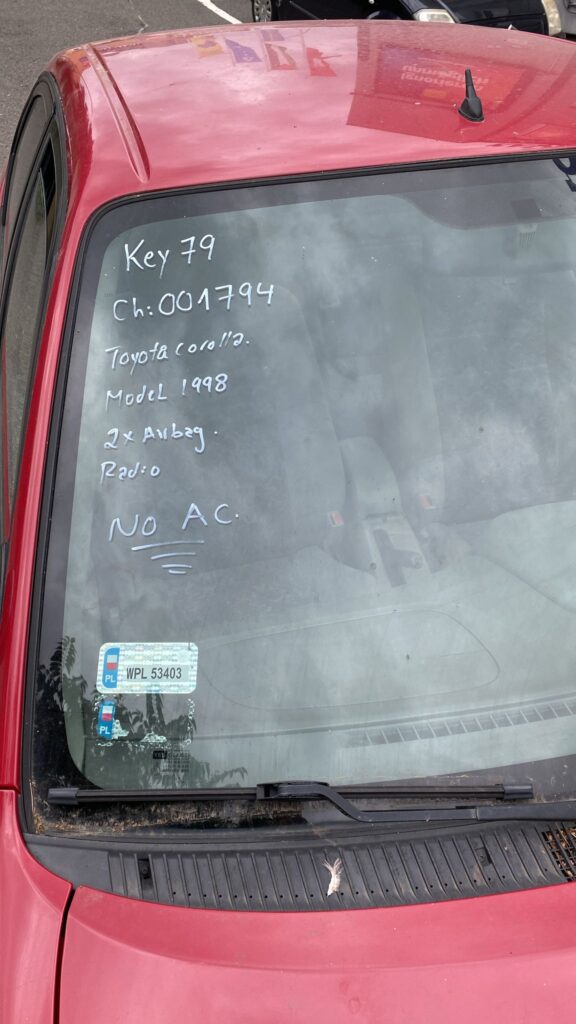 Key 79
Ch: 001794
Toyota corolla.
Model 1998
2x Airbag.
Radio
NO AC.
PL WPL 53403
PL